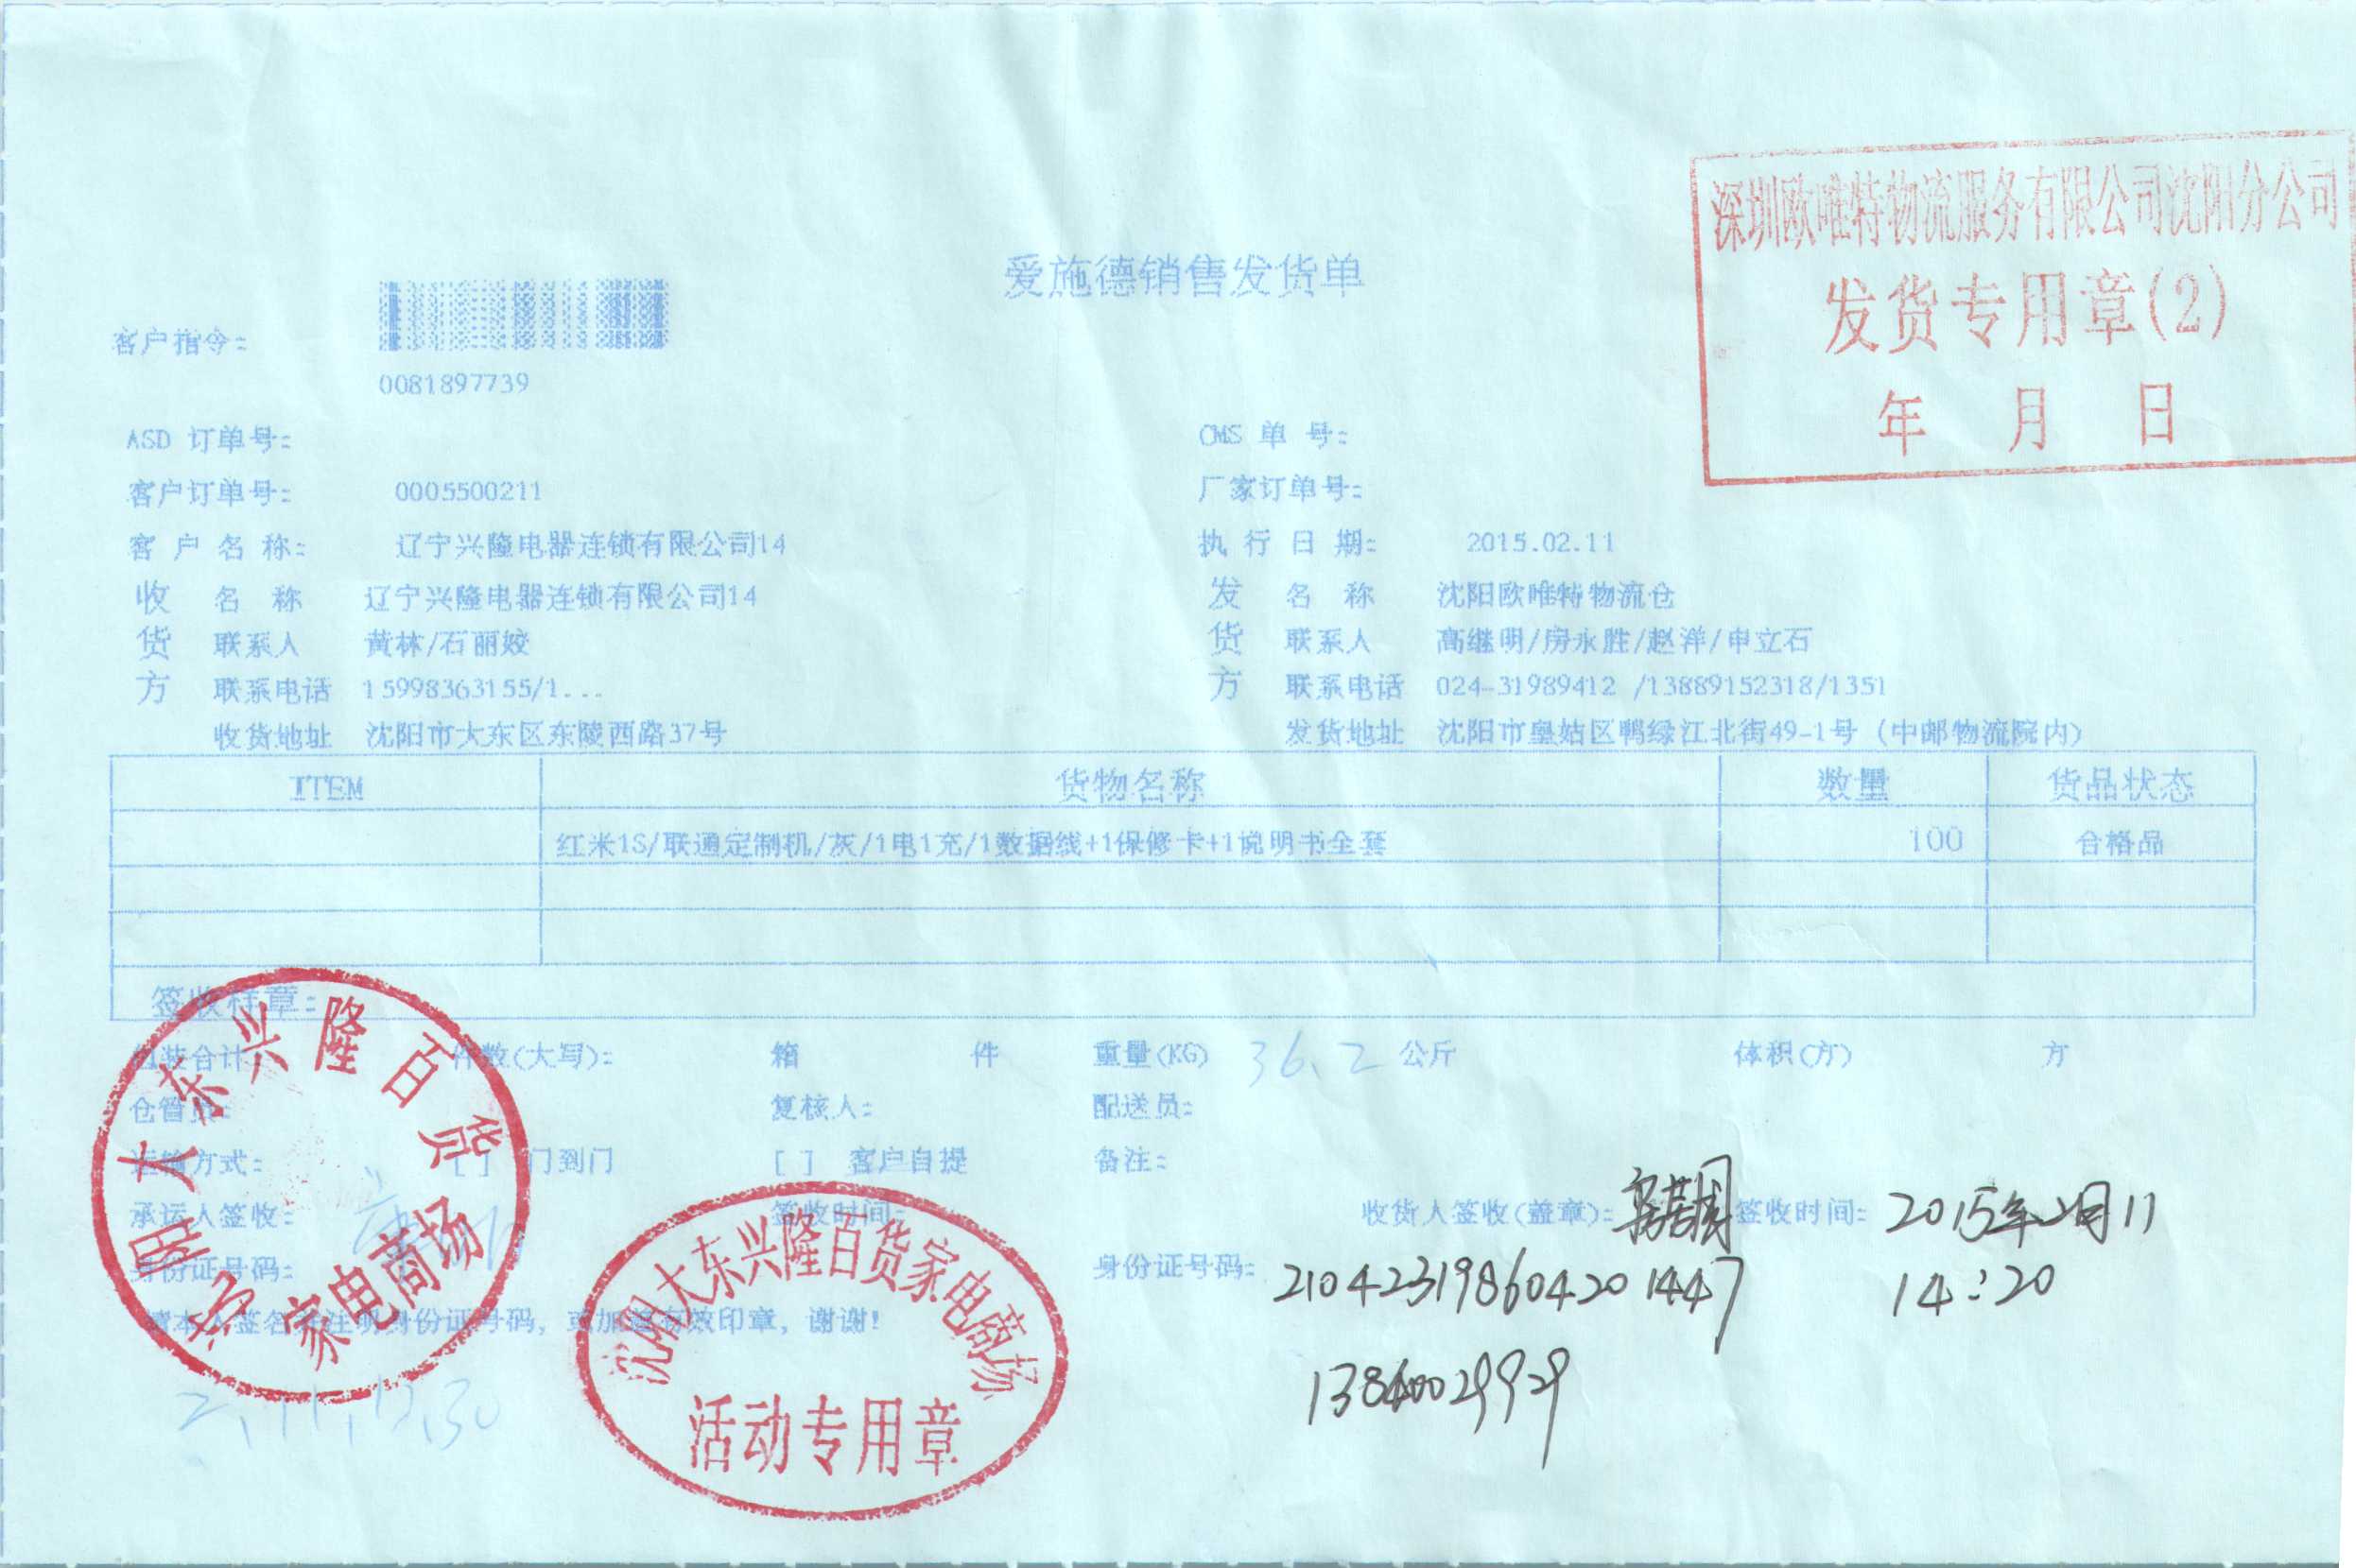 爱施德销售发货单
深圳欧唯特物流服务有限公司沈阳分公司
发货专用章(2)
年 月 日
客户指令:
0081897739
ASD 订单号: CMS 单 号:
客户订单号: 0005500211 厂家订单号:
客 户 名 称: 辽宁兴隆电器连锁有限公司14 执 行 日 期: 2015.02.11
收 名 称 辽宁兴隆电器连锁有限公司14 发 名 称 沈阳欧唯特物流仓
货 联系人 黄林/石丽姣 货 联系人 高继明/房永胜/赵洋/申立石
方 联系电话 15998363155/1... 方 联系电话 024-31989412 /13889152318/1351
收货地址 沈阳市大东区东陵西路37号 发货地址 沈阳市皇姑区鸭绿江北街49-1号 (中邮物流院内)
ITEM 货物名称 数量 货品状态
红米1S/联通定制机/灰/1电1充/1数据线+1保修卡+1说明书全套 100 合格品
签收样章:
包装合计: 件数(大写): 箱 件 重量(KG) 36.2 公斤 体积(方) 方
仓管员: 复核人: 配送员:
运输方式: [ ] 门到门 [ ] 客户自提 备注:
承运人签收: 签收时间: 收货人签收(盖章): 签收时间: 2015年2月11
身份证号码: 身份证号码: 210423198604201447 14:20
请本人签名并注明身份证号码, 或加盖有效印章, 谢谢!
2.11.12.30
大东兴隆百货
家电商场
沈阳大东兴隆百货家电商场
活动专用章